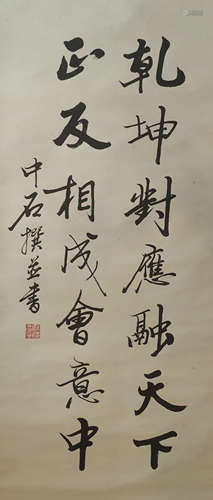 乾坤對應融天下
正反相成會意中
中石撰並書